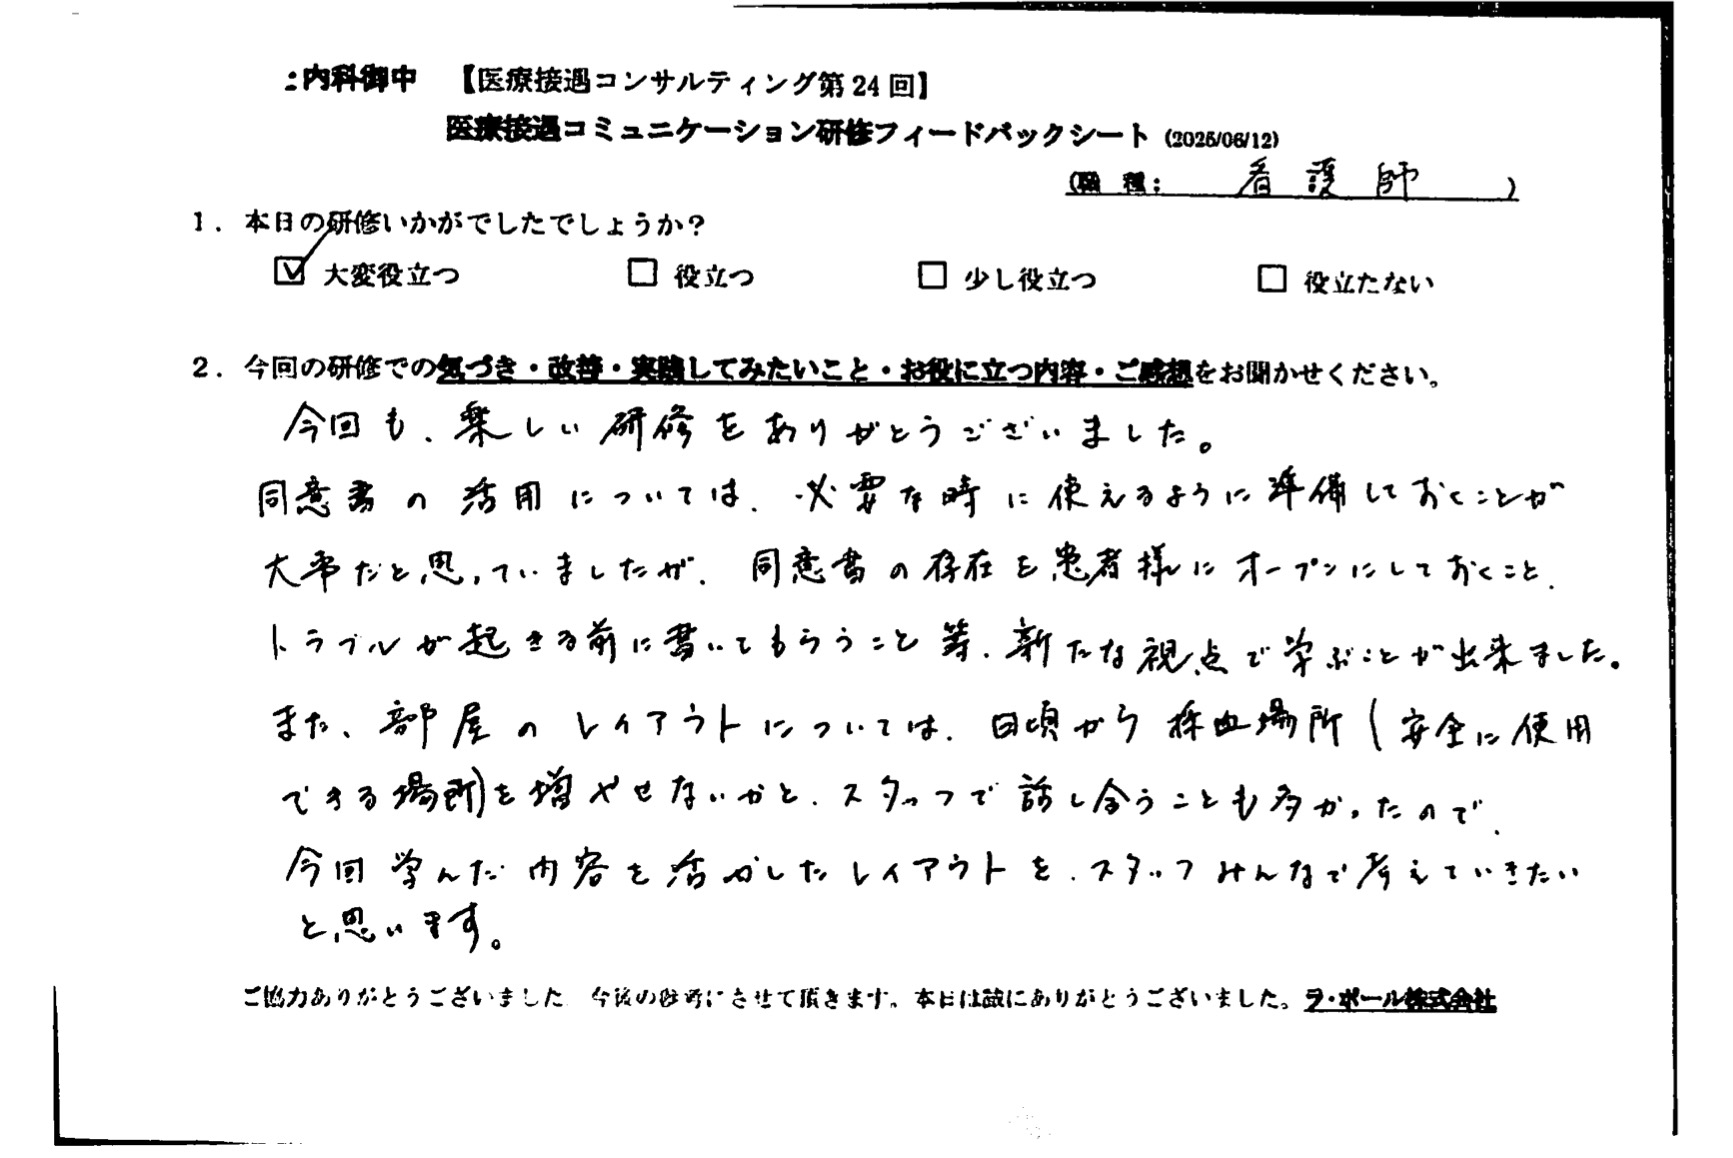 :内科御中 【医療接遇コンサルティング第24回】
医療接遇コミュニケーション研修フィードバックシート (2025/06/12)
(職 種: 看護師 )
1. 本日の研修いかがでしたでしょうか?
☑ 大変役立つ □ 役立つ □ 少し役立つ □ 役立たない
2. 今回の研修での気づき・改善・実践してみたいこと・お役に立つ内容・ご感想をお聞かせください。
今回も、楽しい研修をありがとうございました。
同意書の活用については、必要な時に使えるように準備しておくことが
大事だと思っていましたが、同意書の存在を患者様にオープンにしておくこと、
トラブルが起きる前に書いてもらうこと等、新たな視点で学ぶことが出来ました。
また、部屋のレイアウトについては、日頃から採血場所(安全に使用
できる場所)を増やせないかと、スタッフで話し合うことも多かったので、
今回学んだ内容を活かしたレイアウトを、スタッフみんなで考えていきたい
と思います。
ご協力ありがとうございました 今後の参考にさせて頂きます。本日は誠にありがとうございました。ラ・ポール株式会社